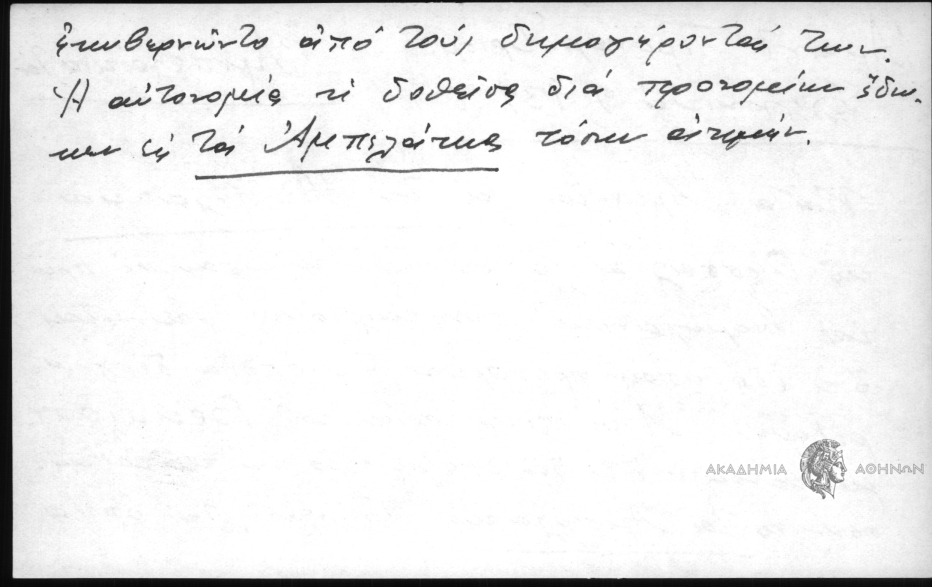 ἐκυβερνῶντο ἀπό τούς δημογέροντάς των.
Ἡ αὐτονομία ἡ δοθεῖσα διά προνομίων ἔδω-
κεν εἰς τά Ἀμπελάκια τόσην αἴγλην.
ΑΚΑΔΗΜΙΑ ΑΘΗΝΩΝ